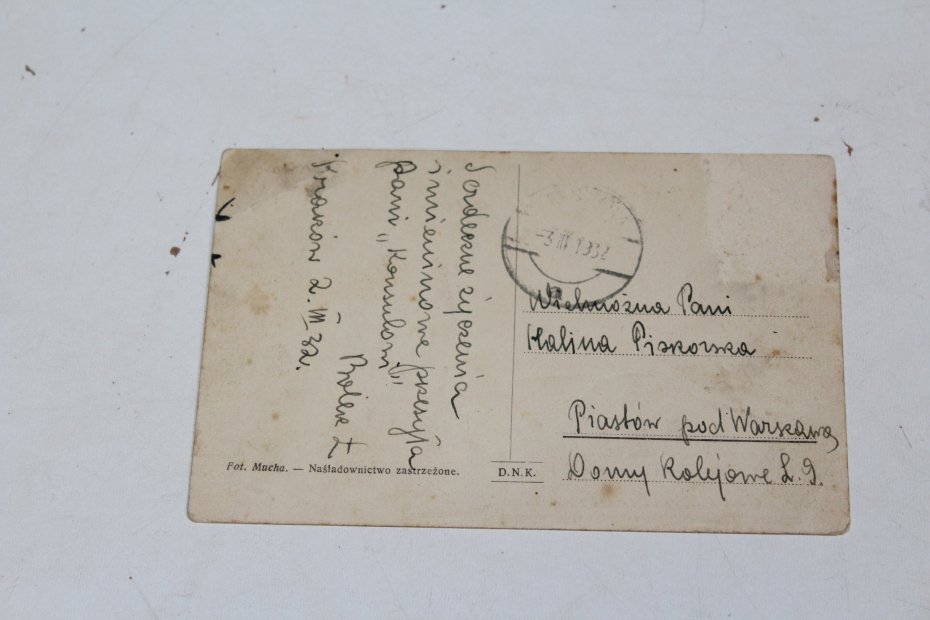 Serdeczne życzenia
imieninowe przesyła
pani „Konsulowi"
Bolek Ł
Kraków 2.III 32.
-3 III 1932
Wielmożna Pani
Halina Piskorska
Piastów pod Warszawą
Domy Kolejowe L. 9.
Fot. Mucha. — Naśladownictwo zastrzeżone.
D.N.K.